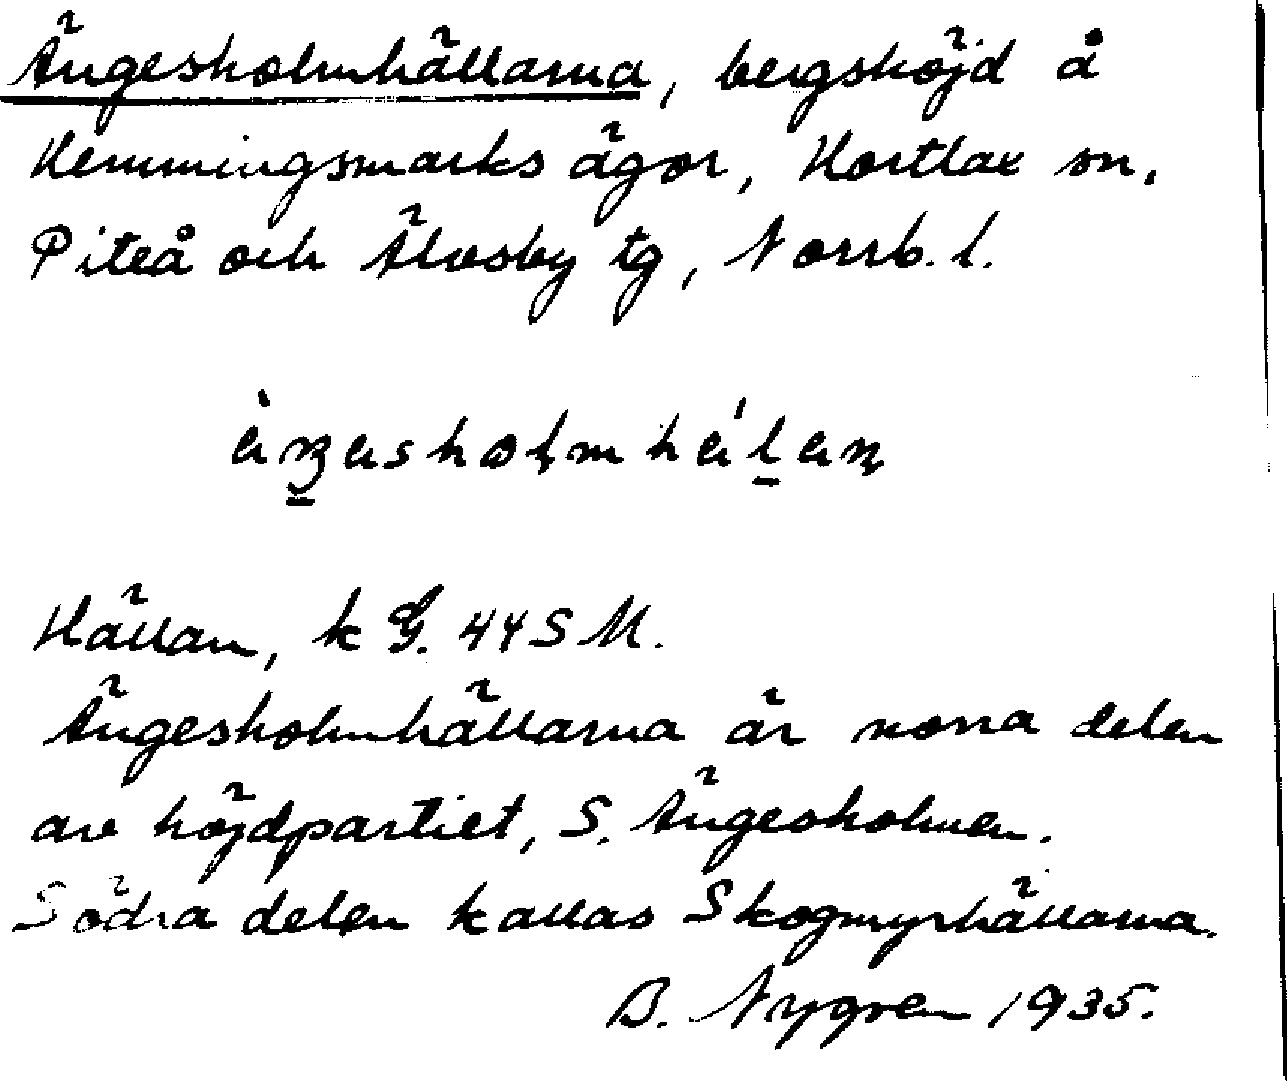 Ängesholmhällarna, bergshöjd å
Hemmingsmarks ägor, Hortlax sn,
Piteå och Älvsby tg, Norrb. l.
Hällan, k G. 44 S M.
Ängesholmhällarna är norra delen
av höjdpartiet, S. Ängesholmen.
Södra delen kallas Skogmyrhällarna.
B. Nygren 1935.